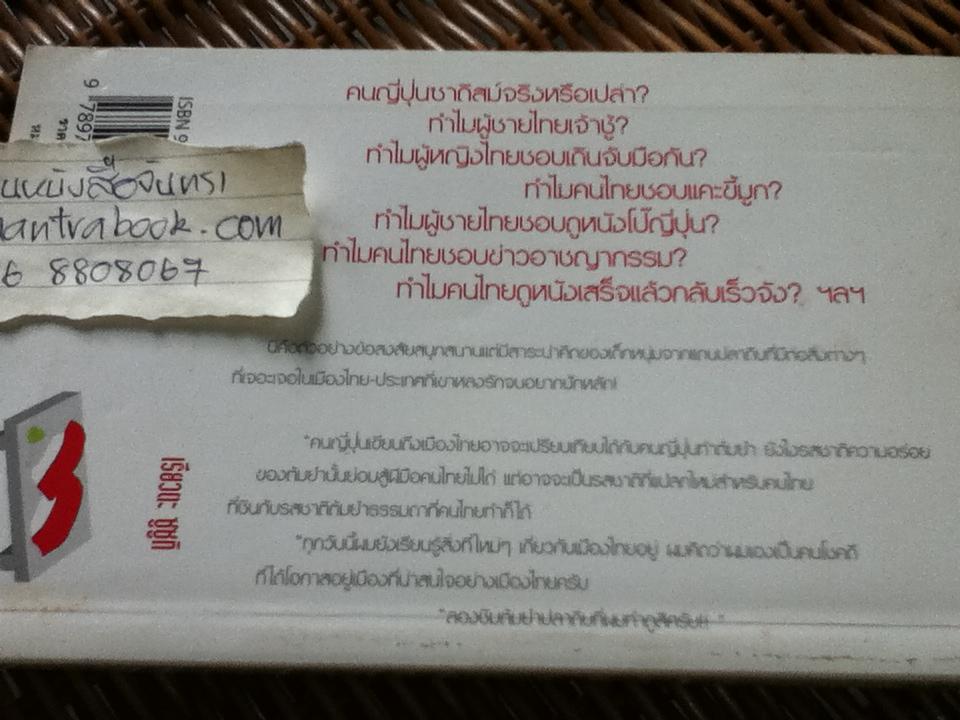 คนญี่ปุ่นซาดิสม์จริงหรือเปล่า?
ทำไมผู้ชายไทยเจ้าชู้?
ทำไมผู้หญิงไทยชอบเดินจับมือกัน?
ทำไมคนไทยชอบแคะขี้มูก?
ทำไมผู้ชายไทยชอบดูหนังโป๊ญี่ปุ่น?
ทำไมคนไทยชอบข่าวอาชญากรรม?
ทำไมคนไทยดูหนังเสร็จแล้วกลับเร็วจัง? ฯลฯ
นี่คือตัวอย่างข้อสงสัยสนุกสนานแต่มีสาระน่าคิดของเด็กหนุ่มจากแดนปลาดิบที่มีต่อสิ่งต่างๆ
ที่เจอะเจอในเมืองไทย-ประเทศที่เขาหลงรักจนอยากปักหลัก!
"คนญี่ปุ่นเขียนถึงเมืองไทยอาจจะเปรียบเทียบได้กับคนญี่ปุ่นทำต้มยำ ยังไงรสชาติความอร่อย
ของต้มยำนั้นย่อมสู้ฝีมือคนไทยไม่ได้ แต่อาจจะเป็นรสชาติที่แปลกใหม่สำหรับคนไทย
ที่ชินกับรสชาติต้มยำธรรมดาที่คนไทยทำก็ได้
"ทุกวันนี้ผมยังเรียนรู้สิ่งที่ใหม่ๆ เกี่ยวกับเมืองไทยอยู่ ผมคิดว่าผมเองเป็นคนโชคดี
ที่ได้โอกาสอยู่เมืองที่น่าสนใจอย่างเมืองไทยครับ
"ลองชิมต้มยำปลาดิบที่ผมทำดูสิครับ!! "
เรียวตะ ซูซูกิ
ISBN 9
9 7897
ราค
นหนังสือจันทรา
antrabook.com
6 8808067